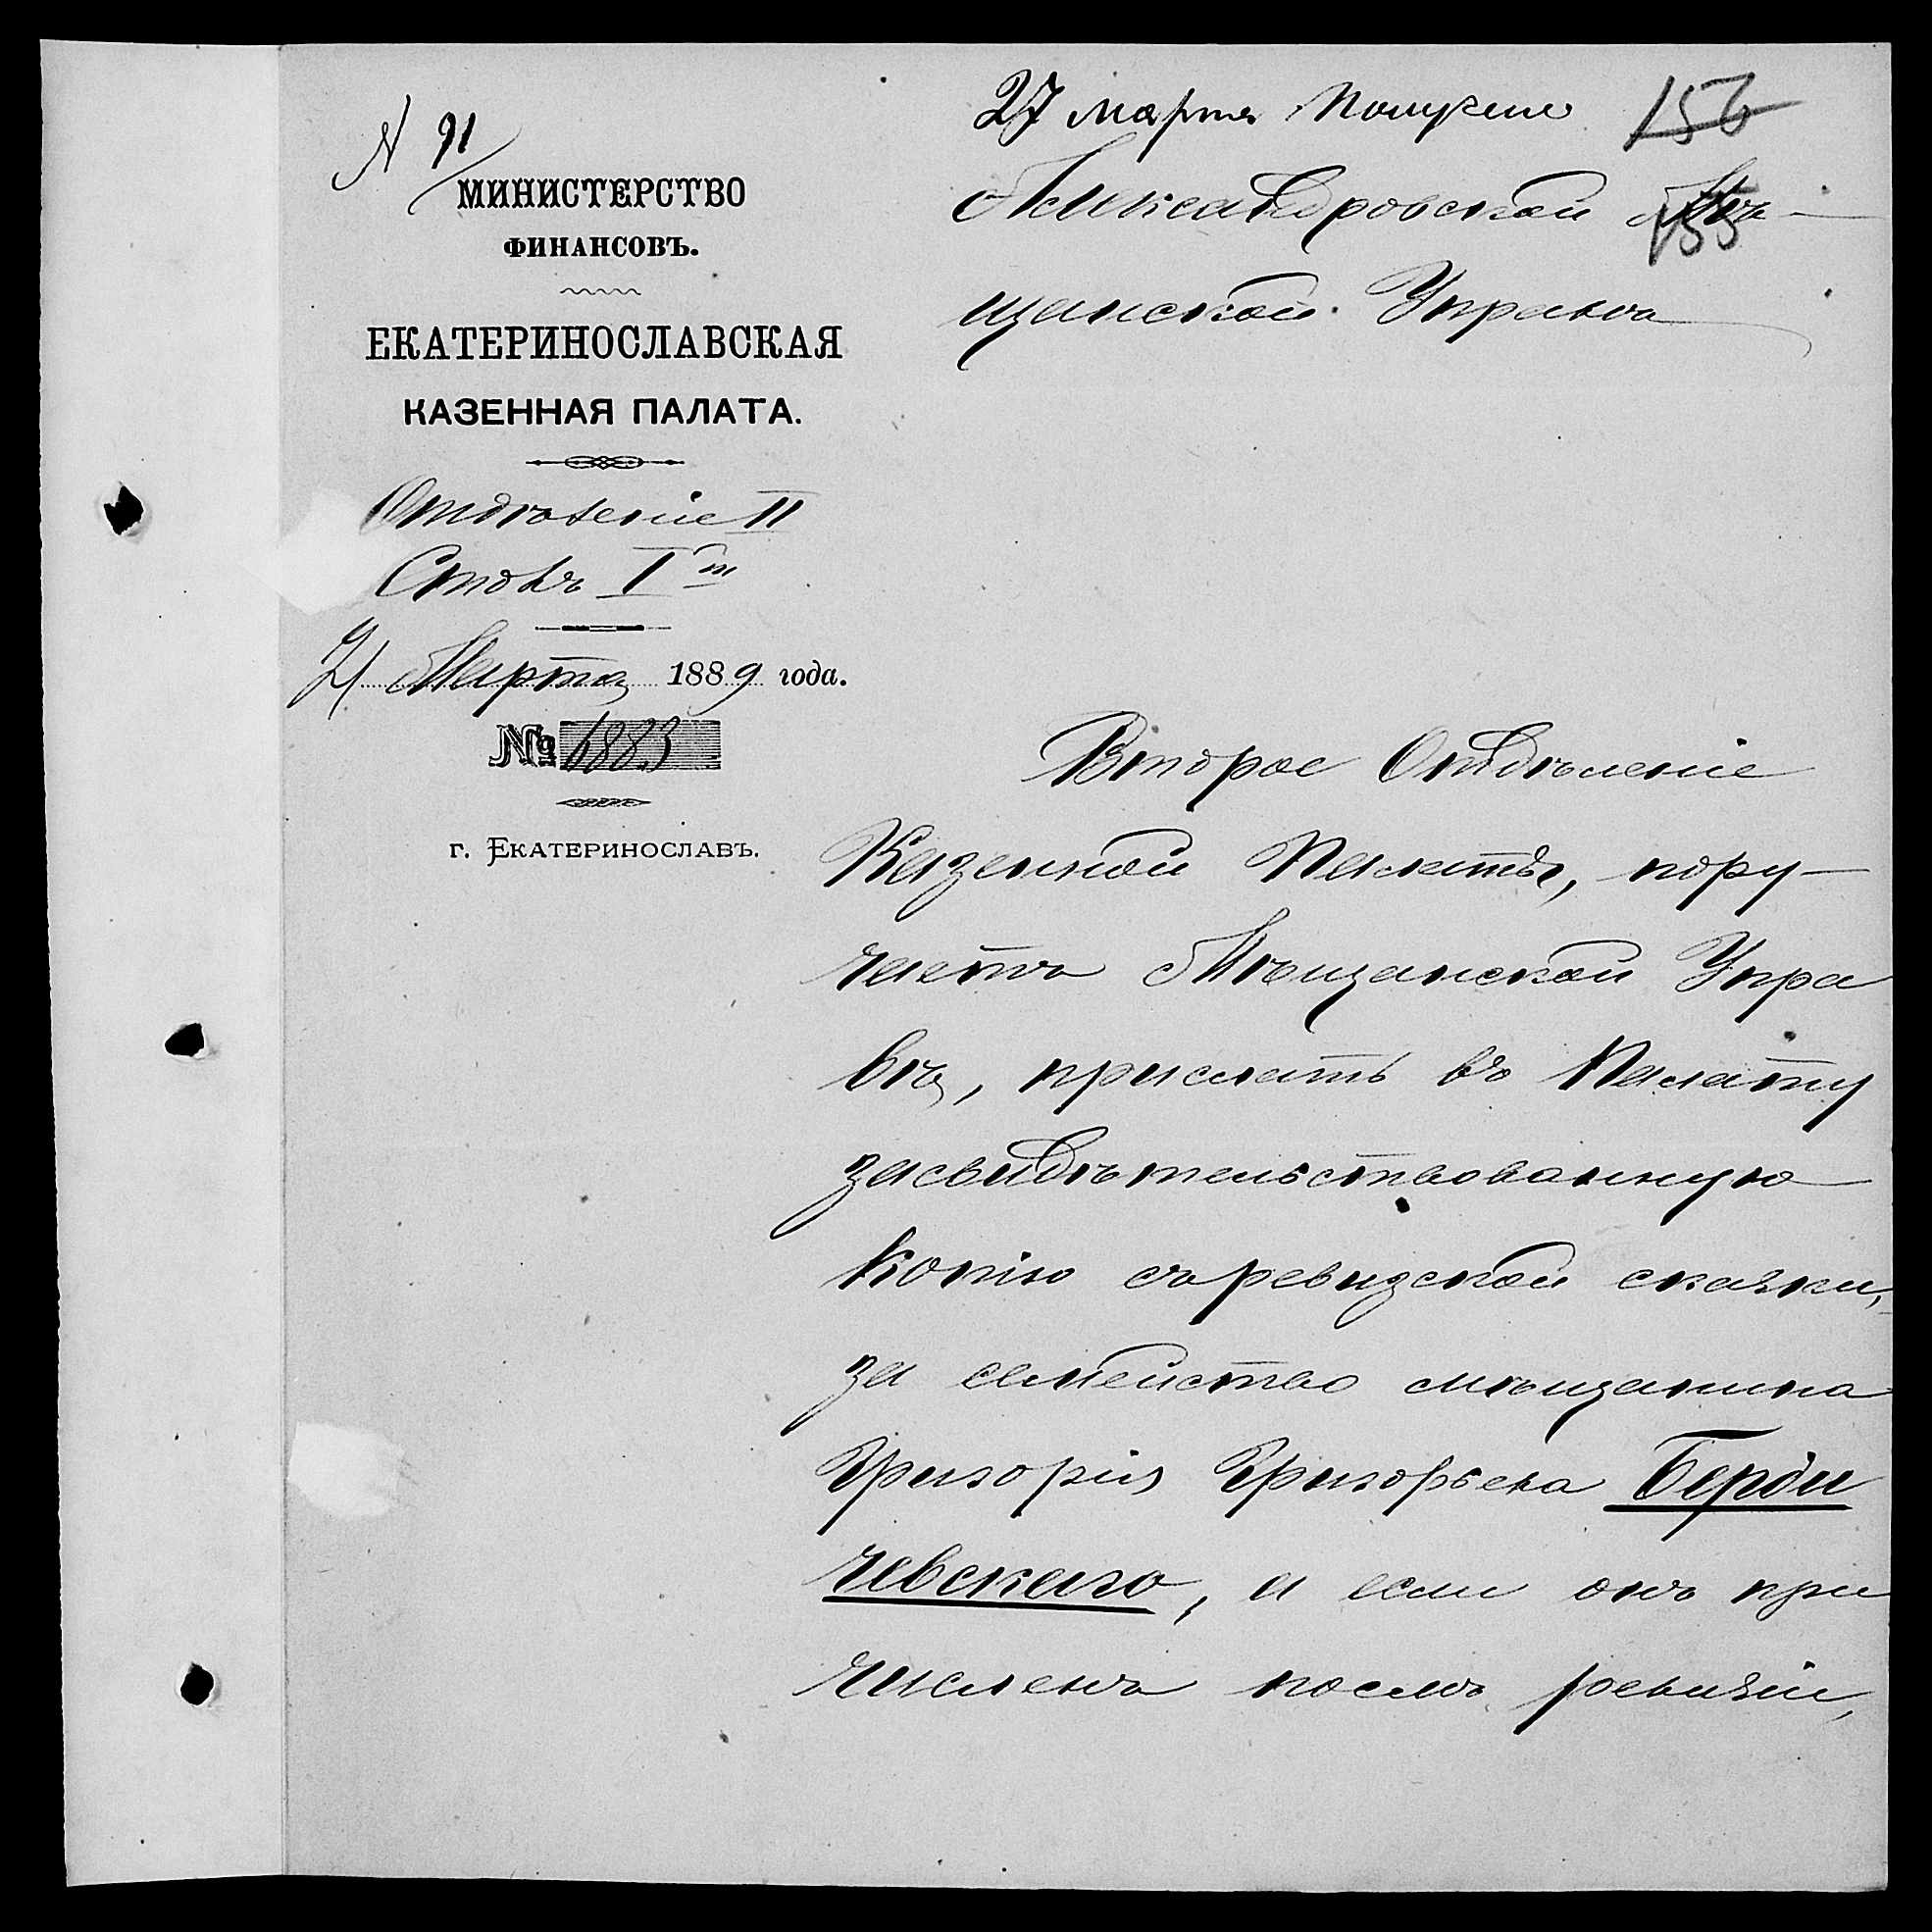 N 91
МИНИСТЕРСТВО
ФИНАНСОВЪ.
ЕКАТЕРИНОСЛАВСКАЯ
КАЗЕННАЯ ПАЛАТА.
Отдѣленіе II
Столъ I й
21 Марта 1889 года.
№ 1883
г. ЕКАТЕРИНОСЛАВЪ.
27 марта Получено
156
155
Александровской Мѣ-
щанской Управѣ
Второе Отдѣленіе
Казенной Палаты, пору-
чаетъ Мѣщанской Упра
вѣ, прислать въ Палату
засвидѣтельствованную
копію съ ревизской сказки,
за семейство мѣщанина
Григорія Григорьева Берди
чевскаго, а если онъ при
численъ послѣ ревизіи,